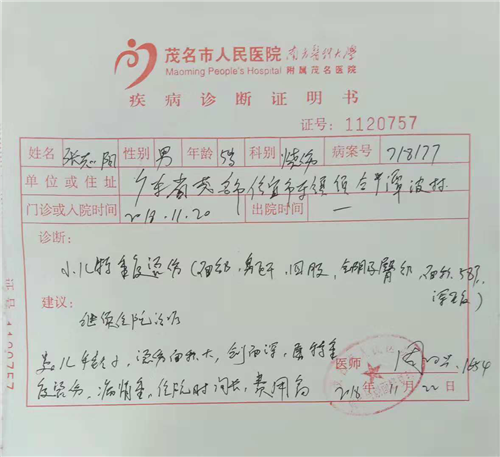 茂名市人民医院 南方医科大学
Maoming People's Hospital 附属茂名医院
疾病诊断证明书
证号：1120757
姓名 张志阳 性别 男 年龄 5岁 科别 烧伤 病案号 718177
单位或住址 广东省茂名市信宜市镇
门诊或入院时间 2018.11.20 出院时间 —
诊断：
小儿特重度烫伤（面部，躯干，四肢，臀部，面积58%，深Ⅱ度）
建议：
继续住院治疗
患儿年龄小，烫伤面积大，创面深，属特重
度烫伤，病情重，住院时间长，费用高
医师
2018年11月22日
证号 1120757